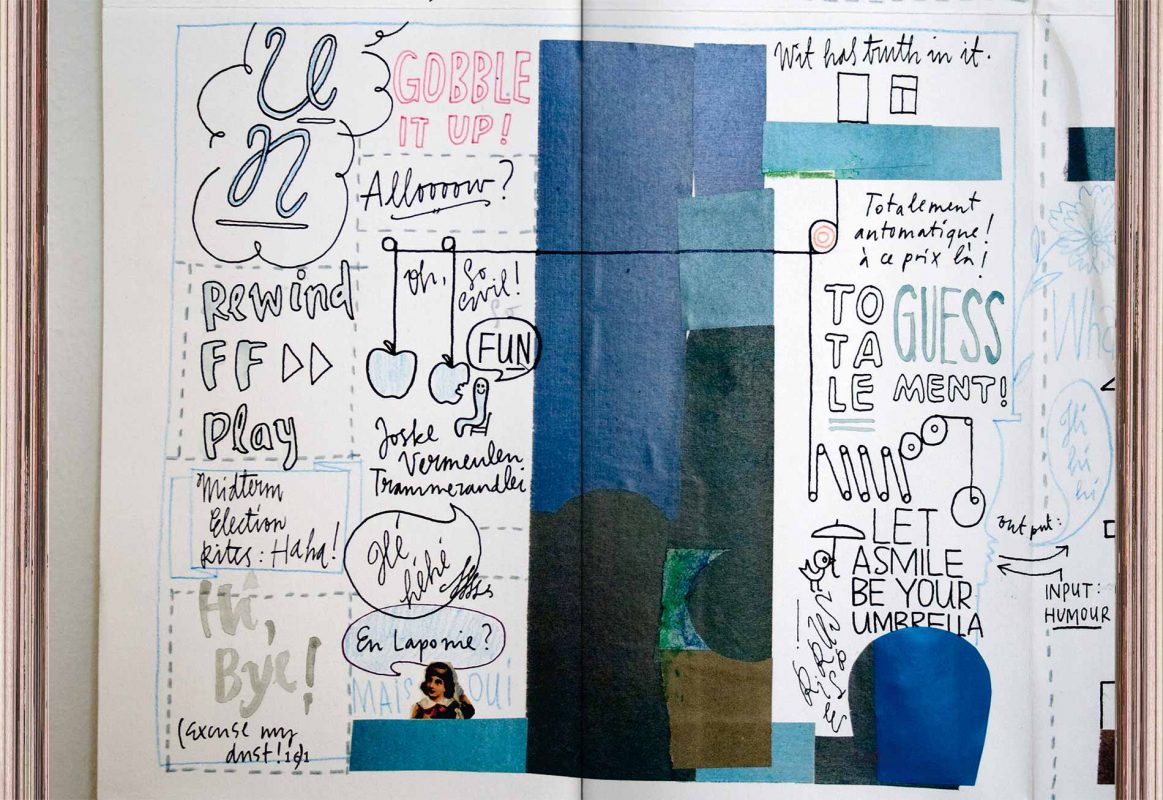 Un
GOBBLE
IT UP!
Allooooow?
Rewind
FF
Play
oh, so
civil!
so
FUN
Joske
Vermeulen
Midterm
Election
kites: Haha!
Hé
héhé
En Laponie?
MAIS OUI
Hi,
Bye!
(Excuse my
dust!)
Wit has truth in it.
Totalement
automatique!
à ce prix là!
TO
TA
LE
MENT!
GUESS
LET
A SMILE
BE YOUR
UMBRELLA
output:
INPUT:
HUMOUR
Hi
hi
hi